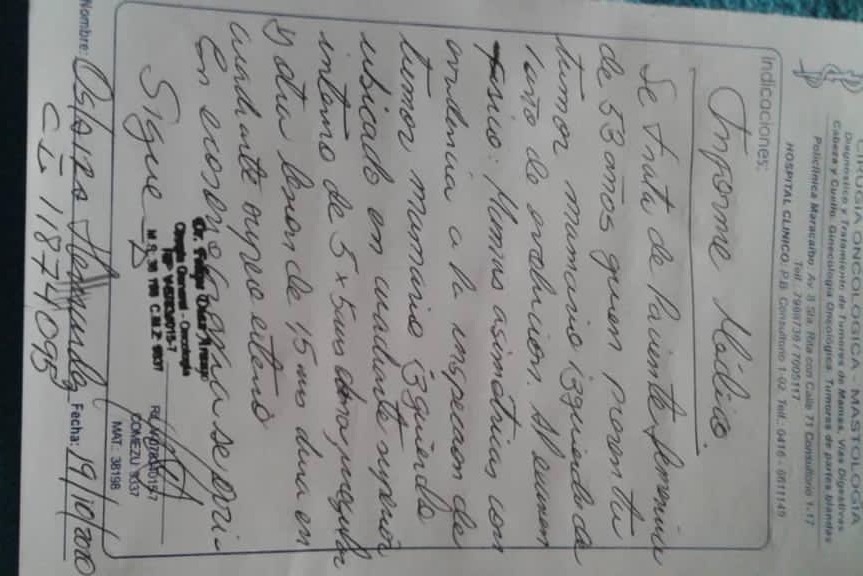 CIRUGIA ONCOLOGICA - MASTOLOGIA
Diagnóstico y Tratamiento de Tumores de Mamas, Vías Digestivas
Cabeza y Cuello, Ginecología Oncológica, Tumores de partes blandas
Policlínica Maracaibo Av. 8 Sta. Rita con Calle 71 Consultorio 1-17
HOSPITAL CLINICO, P.B. Consultorio 1-02
Indicaciones:
Informe Médico.
Se trata de Paciente femenina
de 58 años quien presenta
tumor mamario izquierdo de
1 año de evolucion. Al examen
fisico: Mamas asimétricas con
evidencia a la inspeccion de
tumor mamario izquierdo
ubicado en cuadrante superior
interno de 5 x 5 cms
y otra lesion de 15 mm dura en
cuadrante supero externo
En ecosonografia se
Sigue
Cirugía General - Oncología
COMEZU 9037
MAT.: 38198
Nombre: Hernandez Fecha: 19/10/
C.I 11874095